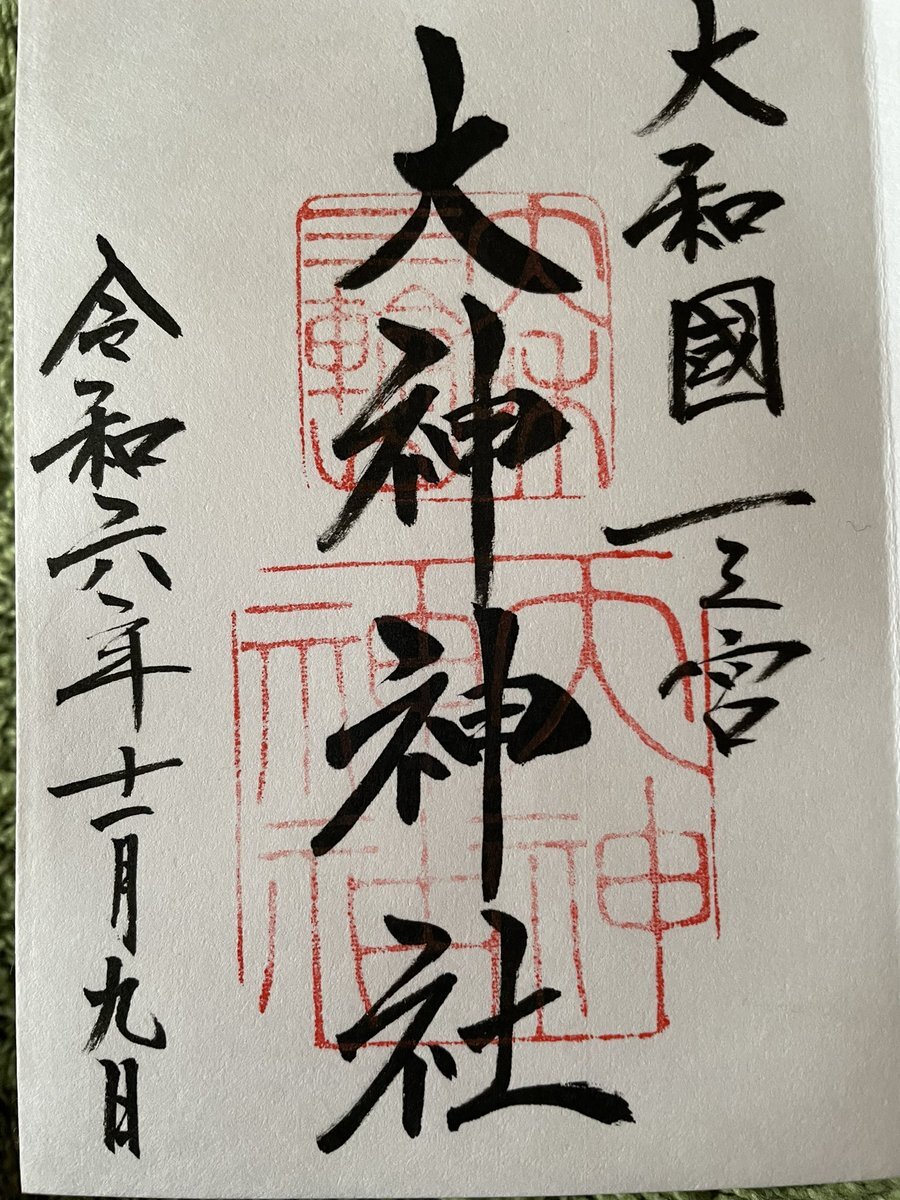 大和國一之宮
大神神社
令和六年十一月九日
大神
神社